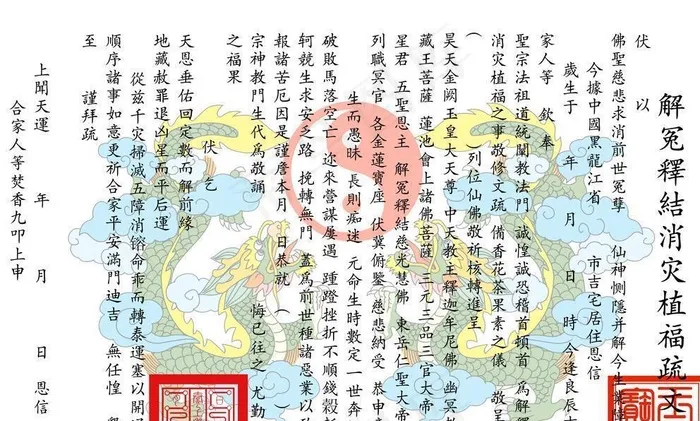 解冤釋結消灾植福疏文
伏以
佛聖慈悲求消前世冤孽 仙神惻隱并解今生
今據中國黑龍江省 市吉宅居住恩信
歲生于 年 月 日 時今逢良辰
家人等 欽奉
聖宗法祖道統闡教法門 誠惶誠恐稽首頓首 為解
消灾植福之事敬修文疏 備香花茶果素之儀 敬呈
( )列位仙佛敬祈核轉進呈
昊天金阙玉皇大天尊 中天教主釋迦牟尼佛 幽冥
藏王菩薩 蓮池會上諸佛菩薩 三元三品三官大帝
星君 五聖恩主 解冤釋結慈光慧佛 東岳仁聖大帝
列職冥官 各金蓮寶座 伏冀俯鑒 慈悲納受 恭申
生而愚昧 長則痴迷 元命生時數定一世奔
破敗馬落空亡 迩來營謀屢遇 踵蹬挫折不順錢
轲競生求安乏路 挽轉無門 蓋為前世種諸惡業以
報諸苦厄因是謹詹本月 日恭就 (
宗神教門生代為敬誦 悔已往之 尤勤
之福果
伏乞
天恩垂佑回定數而解前緣
地藏赦罪退凶星而平后運
從兹千灾掃滅五障消镕命乖而轉泰運塞以開
順序諸事如意更祈合家平安滿門迪吉 無任惶
至 謹拜疏
上聞天運 年 月 日 恩信
合家人等焚香九叩上申